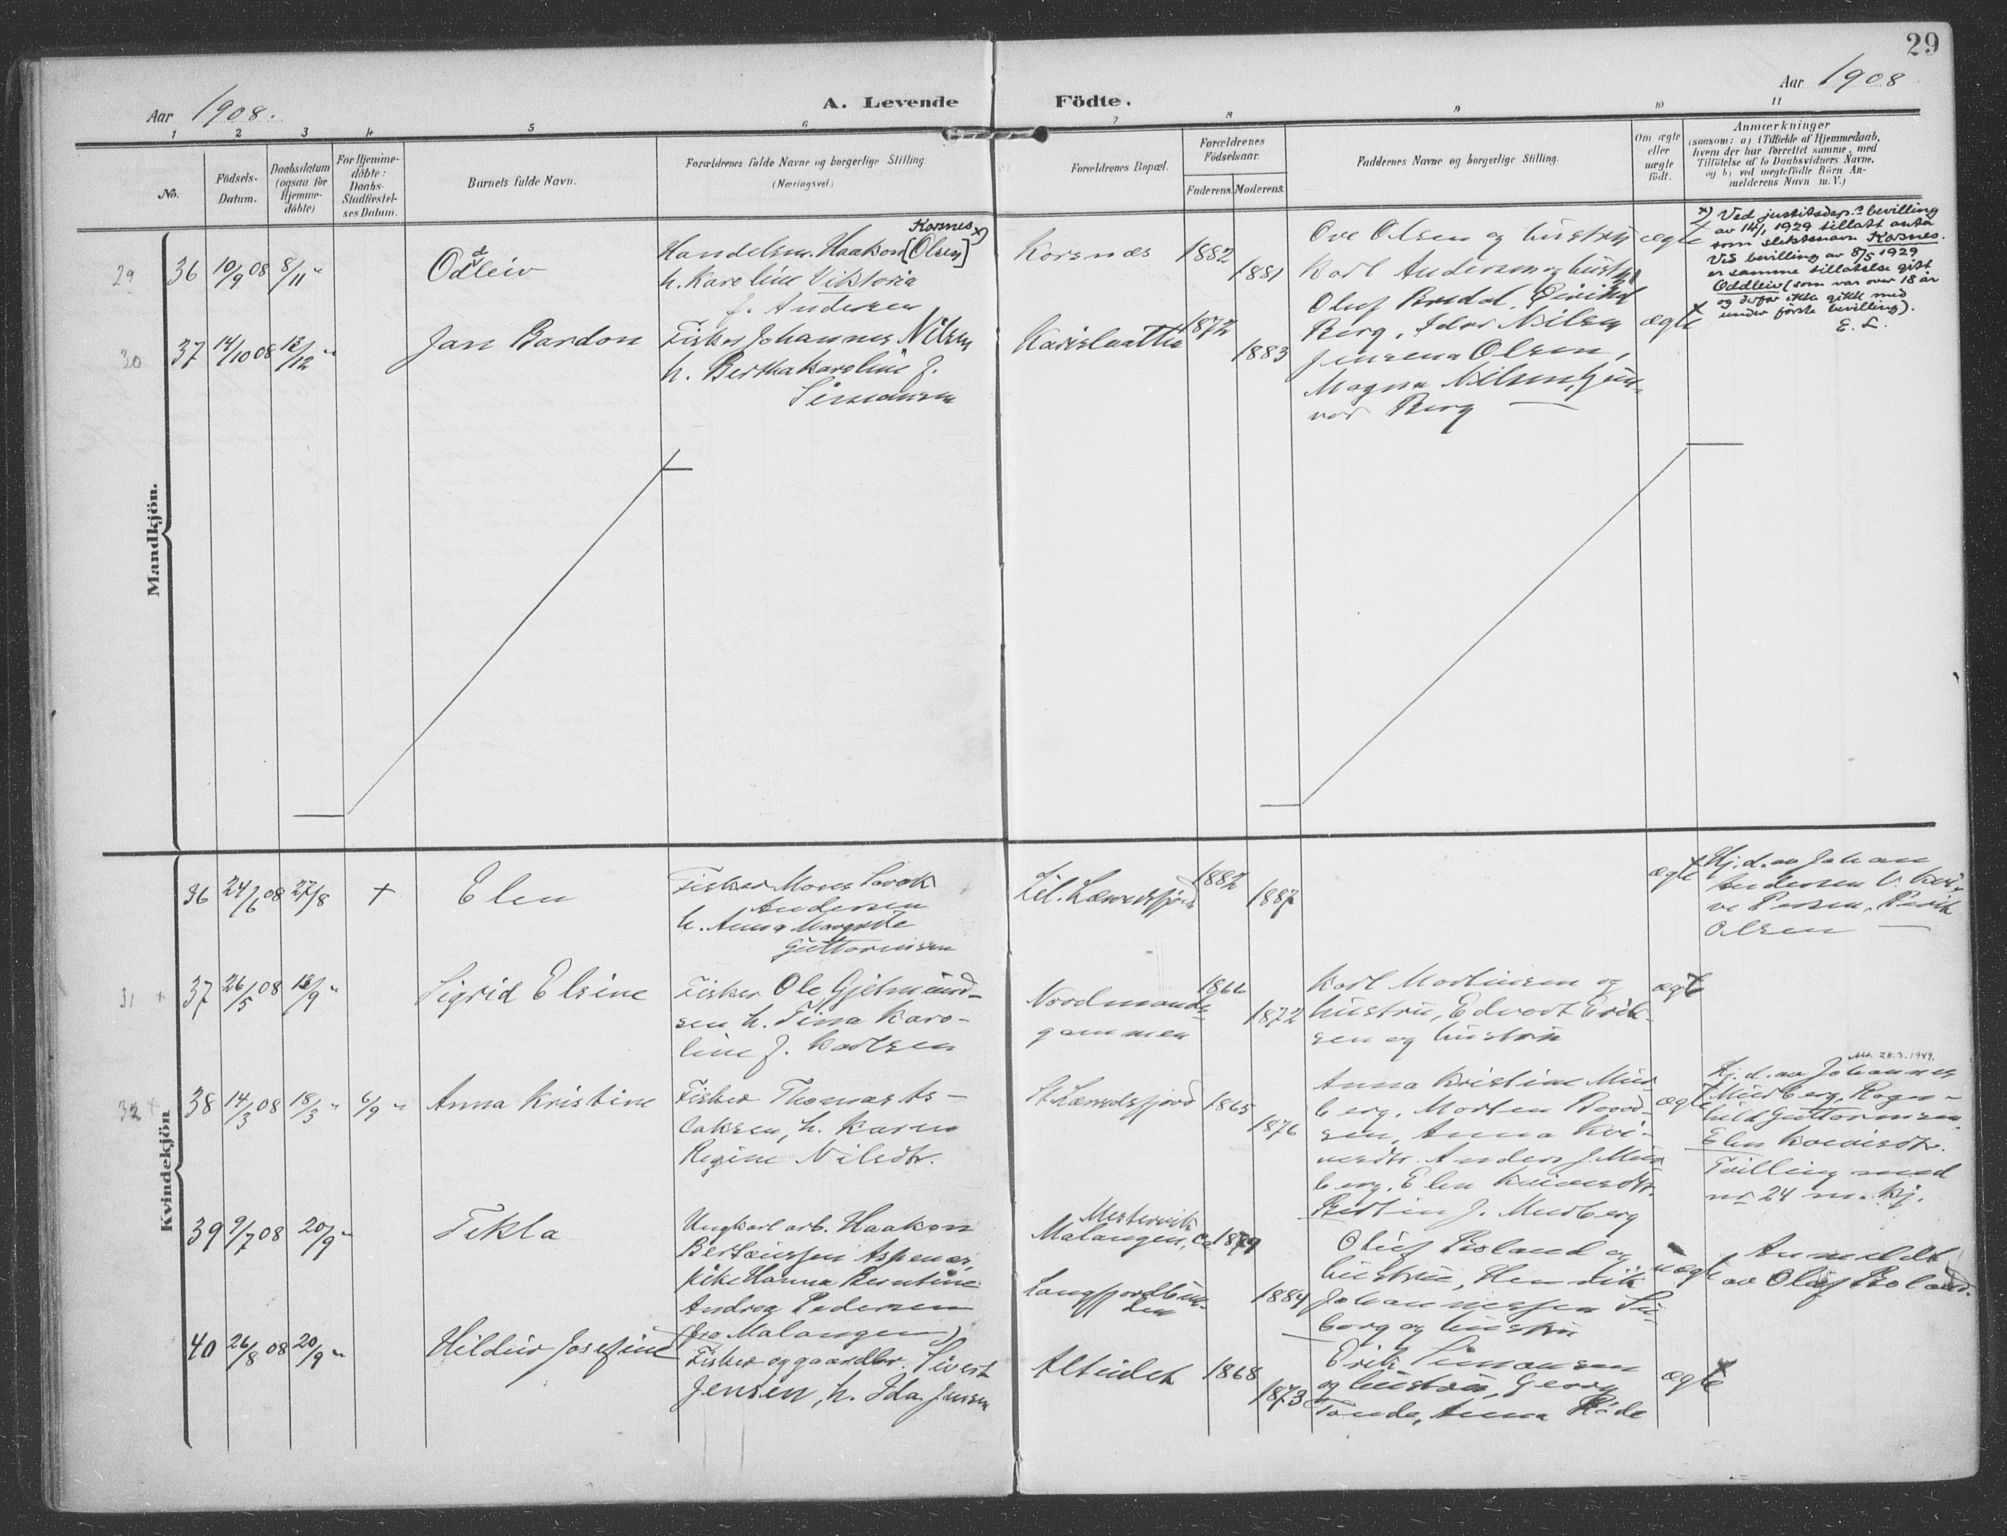 29
Aar 1908.
A. Levende Födte.
Aar 1908
1 2 3 4 5 6 7 8 9 10 11
No.
Födsels-
Datum.
Daabsdatum
(ogsaa for
Hjemme-
döbte)
For Hjemme-
döbte:
Daabs-
Stadfæstel-
ses Datum.
Barnets fulde Navn.
Forældrenes fulde Navne og borgerlige Stilling
(Næringsvei.)
Forældrenes Bopæl.
Forældrenes
Födselsaar.
Faderens. Moderens.
Faddernes Navne og borgerlige Stilling.
Om ægte
eller
uægte
födt.
Anmærkninger
(saasom: a) i Tilfælde af Hjemmedaab,
hvem der har forrettet samme, med
Tilföielse af to Daabsvidners Navne,
og b) ved uægtefödte Börn An-
melderens Navn m. V.)
Mandkjön.
29 36 10/9 08 8/11 "
Oddleiv
Korsnes x)
Handelsm. Haakon [Olsen]
h. Karoline Viktoria
f. Andersen
Korsnæs
1882
1881
Ove Olsen og hustru
Karl Andersen og hustru
ægte
x) Ved justitsdep.s bevilling
av 14/1 1929 tillatt anta
som slektsnavn Korsnes.
Ved bevilling av 8/5 1929
er samme tillatelse gitt
Oddleiv (som var over 18 år
og derfor ikke gikk med
under første bevilling).
E. L.
30 37 14/10 08 13/12 "
Jan Bardon
Fisker Johannes Nilsen
h. Bertha Karoline f.
Simonsen
1872
1883
Oluf Bredal, Eivind
Berg, Nilsen
Jensena Olsen,
Magna Nilsen, Gun-
vor Berg
ægte
Kvindekjön
36 24/6 08 27/8
+
Elen
Fisker Mons
Andersen
h. Anna Margrete
Guttormsen
Lil. Lærredsfjord
1882
1887
ægte
Hj. d. av Johan
Andersen
Persen,
Olsen
31 + 37 26/5 08 13/9 "
Sigrid Elsine
Fisker Ole Gjetmund-
sen h. Tina Karo-
line f. Karlsen
Nordmands-
gammen
1866
1872
Karl Martinsen og
hustru, Edvart Erik-
sen og hustru
ægte
32 + 38 14/3 08 18/3 " 6/9 "
Anna Kristine
Fisker Thomas Is-
aksen, h. Karen
Regine Nilsdtr.
St. Lærredsfjord
1865
1876
Anna Kristine Mur-
berg, Morten
sen, Anna Kvi-
versdtr. Anders J. Mur-
berg, Elen Kviversdtr.
Kristin J. Murberg
ægte
28.3.1949.
Hj. d. av Johannes
Murberg, Ragn-
hild Guttormsen.
Elen Kviversdtr.
Tvilling med
nr 24 m. kj.
39 9/7 08 20/9 "
Tekla
Ungkarl arb. Haakon
Berteussen Aspenes,
pike Hanna Berntine
Andrea Pedersen
(fra Malangen)
Mestervik
Malangen,
Langfjordbun-
den
1879
1884
Oluf Boland og
hustru, Henrik
Johannessen
og hustru
uægte
Anmeldt
av Oluf Boland.
40 26/8 08 20/9 "
Hildur Josefine
Fisker og gaardbr. Sivert
Jensen, h. Ida Jensen
Alteidet
1868
1873
Erik Simonsen
og hustru, Georg
Tande, Anna
ægte